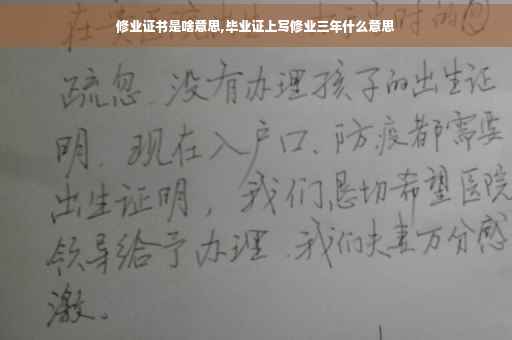 修业证书是啥意思,毕业证上写修业三年什么意思
疏忽、没有办理孩子的出生证
明、现在入户口、防疫都需要
出生证明，我们恳切希望医院
领导给予办理、我们夫妻万分感
激。